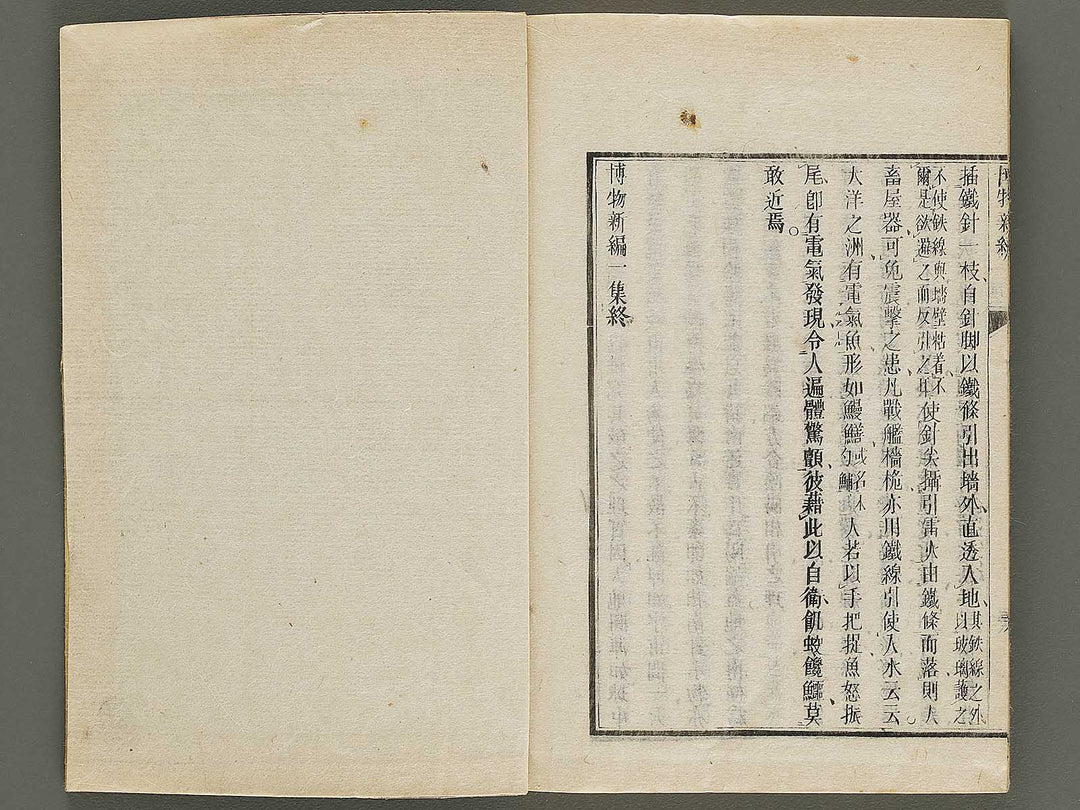 博物新編
插鐵針一枝自針脚以鐵條引出墻外直透人地其鉄線之外以玻璃護之
不使鉄線與墻壁粘着不爾是欲避之而反引之耳使針尖攝引雷火由鐵條而落則人
畜屋器可免震擊之患凡戰艦檣桅亦用鐵線引使人水云云
大洋之洲有電氣魚形如鰻鱔人若以手把捉魚怒振
尾卽有電氣發現令人遍體驚顫彼藉此以自衞飢蛟饞鱷莫
敢近焉
博物新編一集終